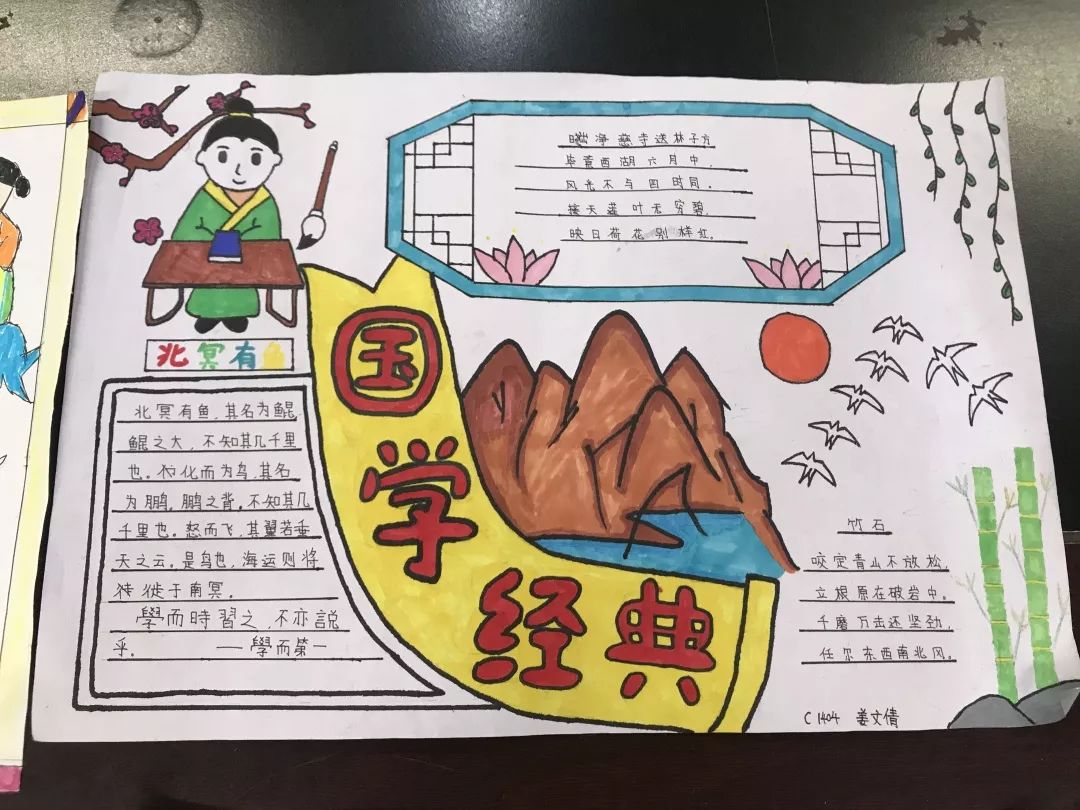 晓净慈寺送林子方
毕竟西湖六月中，
风光不与四时同。
接天莲叶无穷碧，
映日荷花别样红。
国学经典
北冥有鱼
北冥有鱼，其名为鲲，
鲲之大，不知其几千里
也。化而为鸟，其名
为鹏，鹏之背，不知其几
千里也。怒而飞，其翼若垂
天之云。是鸟也，海运则将
徙于南冥。
學而時習之，不亦説
乎。 ——學而第一
竹石
咬定青山不放松，
立根原在破岩中。
千磨万击还坚劲，
任尔东西南北风。
C1404 姜文倩